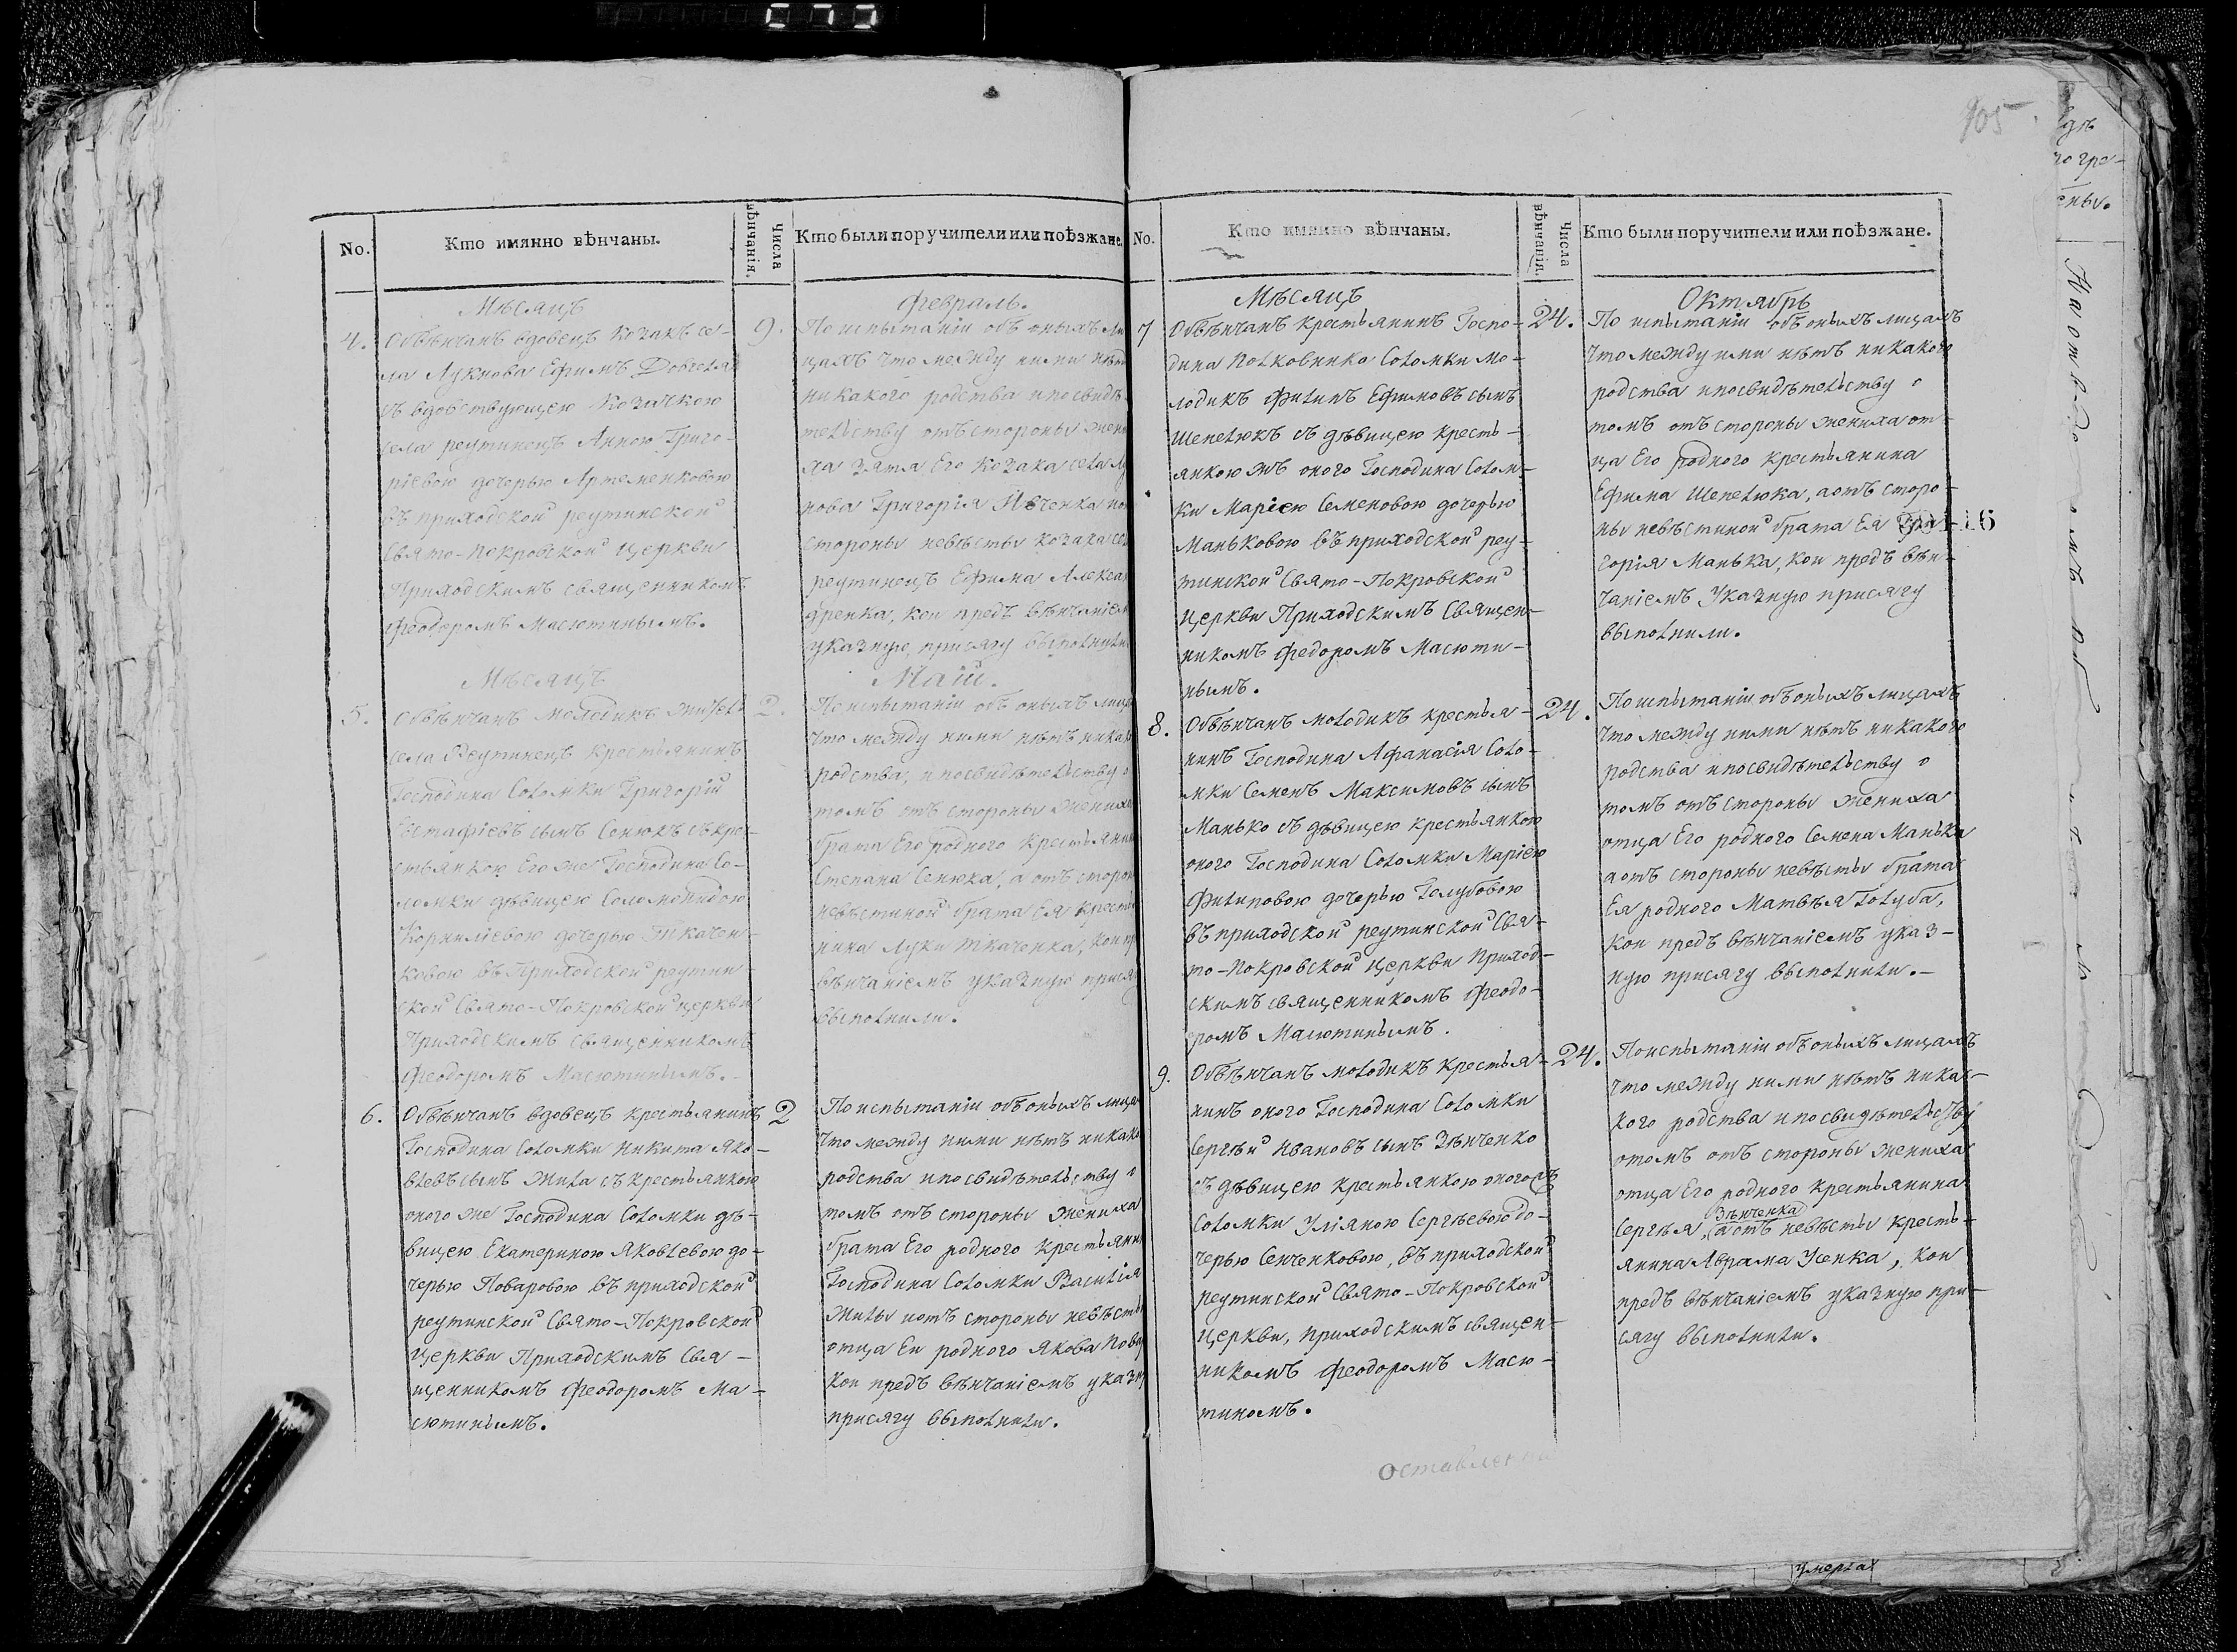 905
No.
Кто имянно вѣнчаны.
Числа вѣнчанія.
Кто были поручители или поѣзжане.
Мѣсяцъ
Февраль.
4.
Обвѣнчанъ вдовецъ козакъ се-
ла Лукнова Ефимъ
съ вдовствующею козачкою
села реутинецъ Анною Григо-
ріевою дочерью Артеменковою
въ приходской реутинской
Свято-Покровской церкви
Приходскимъ священникомъ
Феодоромъ Масютинымъ.
9.
По испытаніи объ оныхъ ли
цахъ что между ними нѣтъ
никакого родства и по свидѣ
тельству отъ стороны жени
ха зятя Его козака села Лу
нова Григорія Ивченка по
стороны невѣсты козака се
реутинецъ Ефима Алекса
дренка, кои предъ вѣнчаніем
указную присягу выполнили
Мѣсяцъ
Маій.
5.
Обвѣнчанъ молодикъ жител
села Реутинецъ крестьянинъ
Господина Соломки Григорій
Евстафіевъ сынъ Сенюкъ съ кре-
стьянкою Его же Господина Со-
ломки дѣвицею Соломонидою
Корниліевою дочерью Ткачен-
ковою въ Приходской реутин
ской Свято-Покровской церкви
Приходскимъ священникомъ
Феодоромъ Масютинымъ.-
2.
По испытаніи объ оныхъ лица
что между ними нѣтъ никако
родства, и по свидѣтельству о
томъ отъ стороны жениха
брата Его родного крестьянин
Степана Сенюка, а отъ сторон
невѣстиной брата Ея кресть
нина Луки Ткаченка, кои пр
вѣнчаніемъ указную прися
выполнили.
6.
Обвѣнчанъ вдовецъ крестьянинъ
Господина Соломки Никита Яко-
влевъ сынъ Жила съ крестьянкою
оного же Господина Соломки дѣ-
вицею Екатериною Яковлевою до-
черью Поваровою въ приходской
реутинской Свято-Покровской
церкви Приходскимъ Свя-
щенникомъ Феодоромъ Ма-
сютинымъ.
2
По испытаніи объ оныхъ лица
что между ними нѣтъ никако
родства и по свидѣтельству о
томъ отъ стороны жениха
брата Его родного крестьянин
Господина Соломки Василія
Жилы и отъ стороны невѣсты
отца Еи родного Якова Пова
кои предъ вѣнчаніемъ указн
присягу выполнили.
No.
Кто имянно вѣнчаны.
Числа вѣнчанія.
Кто были поручители или поѣзжане.
Мѣсяцъ
Октябрь
7
Обвѣнчанъ крестьянинъ Госпо-
дина Полковника Соломки мо-
лодикъ Филипъ Ефимовъ сынъ
Шепелюкъ съ дѣвицею кресть-
янкою жъ оного Господина Солом-
ки Маріею Семеновою дочерью
Маньковою въ приходской реу-
тинской Свято-Покровской
церкви Приходскимъ Священ-
никомъ Федоромъ Масюти-
нымъ.
24.
По испытаніи объ оныхъ лицахъ
что между ими нѣтъ никакого
родства и по свидѣтельству о
томъ отъ стороны жениха от-
ца Его родного крестьянина
Ефима Шепелюка, а отъ сторо-
ны невѣстиной брата Ея Гри-
горія Манька, кои предъ вѣн-
чаніемъ Указную присягу
выполнили.
8.
Обвѣнчанъ молодикъ крестья-
нинъ Господина Афанасія Соло-
мки Семенъ Максимовъ сынъ
Манько съ дѣвицею крестьянкою
оного Господина Соломки Маріею
Филиповою дочерью Голубовою
въ приходской реутинской Свя-
то-Покровской церкви Приход-
скимъ священникомъ Феодо-
ромъ Масютинымъ.
24.
По испытаніи объ оныхъ лицахъ
что между ними нѣтъ никакого
родства и по свидѣтельству о
томъ отъ стороны жениха
отца Его родного Семена Манька
а отъ стороны невѣсты брата
Ея родного Матвѣя Голуба,
кои предъ вѣнчаніемъ указ-
ную присягу выполнили.-
9.
Обвѣнчанъ молодикъ крестья-
нинъ оного Господина Соломки
Сергѣй Ивановъ сынъ Зѣнченко
съ дѣвицею крестьянкою оного
Соломки Уліяною Сергѣевою до-
черью Сенченковою, въ приходской
реутинской Свято-Покровской
церкви, приходскимъ священ-
никомъ Феодоромъ Масю-
тиномъ.
24.
По испытаніи объ оныхъ лицахъ
что между ними нѣтъ ника-
кого родства и по свидѣтельству
о томъ отъ стороны жениха
отца Его родного крестьянина
Зѣнченка
Сергѣя, а отъ невѣсты кресть-
янина Аврама Усенка, кои
предъ вѣнчаніемъ указную при-
сягу выполнили.
умерла